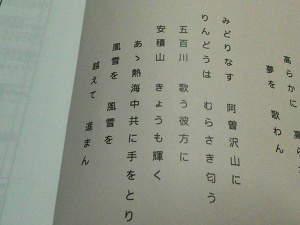 高らかに 高ら
夢を 歌わん
みどりなす 阿曽沢山に
りんどうは むらさき匂う
五百川 歌う彼方に
安積山 きょうも輝く
あゝ熱海中共に手をとり
風雪を 風雪を
越えて 進まん